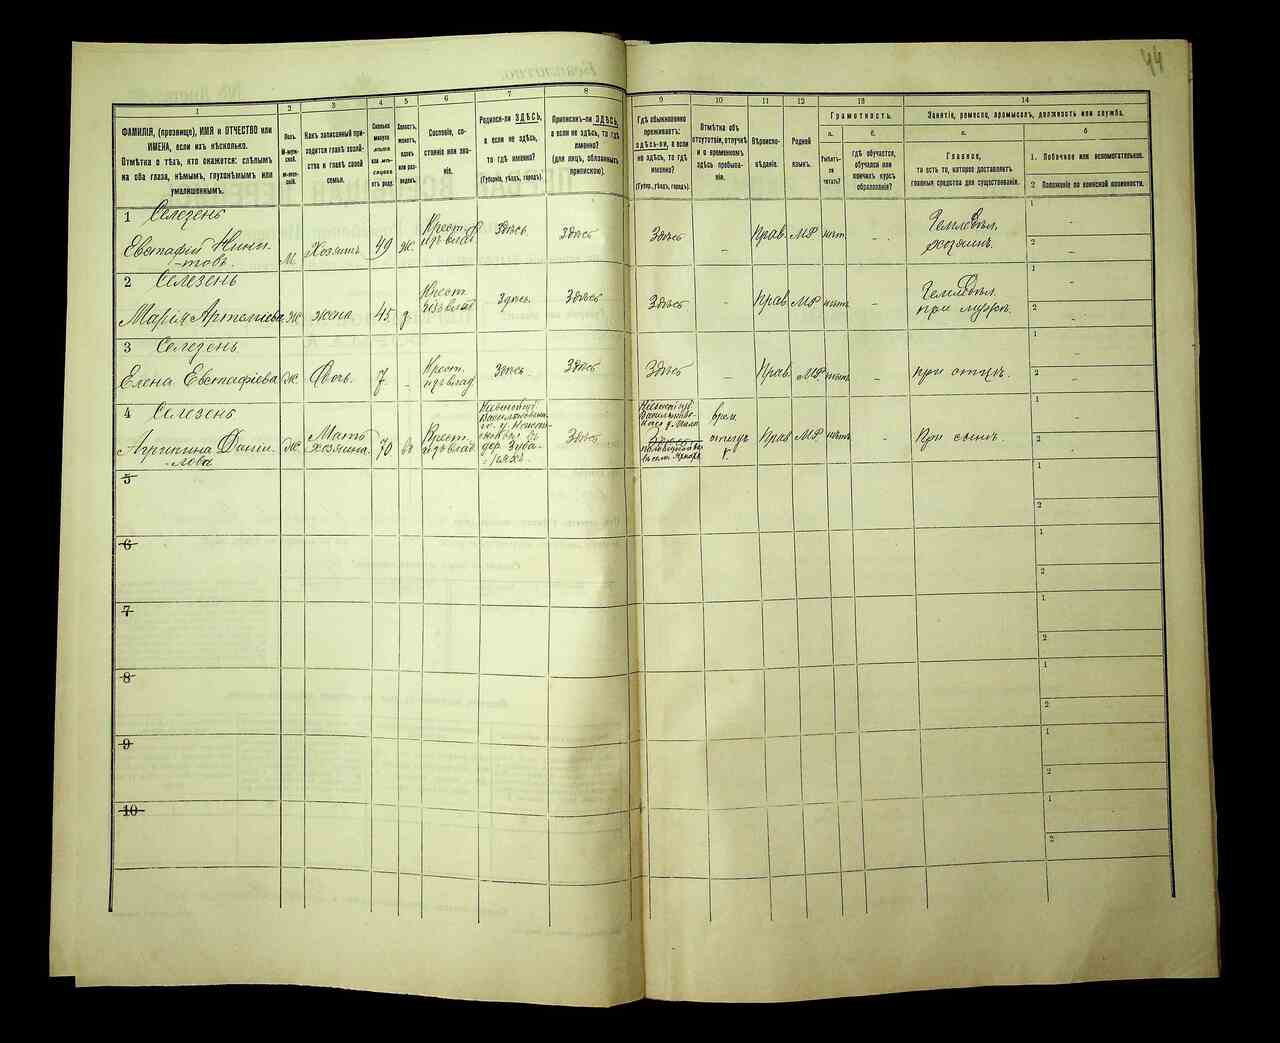 44
1
2
3
4
5
6
7
8
9
10
11
12
13
14
ФАМИЛІЯ, (прозвище), ИМЯ и ОТЧЕСТВО или
ИМЕНА, если ихъ нѣсколько.
Отмѣтка о тѣхъ, кто окажется: слѣпымъ
на оба глаза, нѣмымъ, глухонѣмымъ или
умалишеннымъ.
Полъ.
М-муж-
ской.
Ж-жен-
скій.
Какъ записанный при-
ходится главѣ хозяй-
ства и главѣ своей
семьи.
Сколько
минуло
лѣтъ
или мѣ-
сяцевъ
отъ роду.
Холостъ,
женатъ,
вдовъ
или раз-
веденъ.
Сословіе, со-
стояніе или зва-
ніе.
Родился-ли ЗДѢСЬ,
а если не здѣсь,
то гдѣ именно?
(Губернія, уѣздъ, городъ).
Приписанъ-ли ЗДѢСЬ,
а если не здѣсь, то гдѣ
именно?
(для лицъ, обязанныхъ
припискою).
Гдѣ обыкновенно
проживаетъ:
здѣсь-ли, а если
не здѣсь, то гдѣ
именно?
(Губер., уѣздъ, городъ).
Отмѣтка объ
отсутствіи, отлучкѣ
и о временномъ
здѣсь пребыва-
ніи.
Вѣроиспо-
вѣданіе.
Родной
языкъ.
Грамотность.
а.
б.
Умѣетъ-
ли
читать?
гдѣ обучается,
обучался или
кончилъ курсъ
образованія?
Занятіе, ремесло, промыселъ, должность или служба.
а.
б
Главное,
то есть то, которое доставляетъ
главныя средства для существованія.
1. Побочное или вспомогательное.
2 Положеніе по воинской повинности.
1 Селезень
Евстафій Ники-
-товъ
М. Хозяинъ 49 ж. Крест.
изъ влад Здѣсь. Здѣсь Здѣсь - Прав. МР. нѣтъ - Земледѣл.
хозяинъ.
1 -
2 -
2 Селезень
Марія Артемиева Ж. жена 45 з. Крест.
изъ влад Здѣсь. Здѣсь Здѣсь - Прав. МР. нѣтъ - Земледѣл.
при мужѣ.
1 -
2 -
3 Селезень
Елена Евстафіева Ж. Дочь. 7 - Крест.
изъ влад. Здѣсь. Здѣсь Здѣсь - Прав. МР. нѣтъ - при отцѣ.
1 -
2 -
4 Селезень
Агрипина Дани-
-лова
Ж. Мать
хозяина. 70 вд Крест.
изъ влад. Кіевской губ
дер. Здѣсь
Кіевской губ
Здѣсь
врем. Прав МР. нѣтъ - При сынѣ.
1 -
2 -
5
1
2
6
1
2
7
1
2
8
1
2
9
1
2
10
1
2